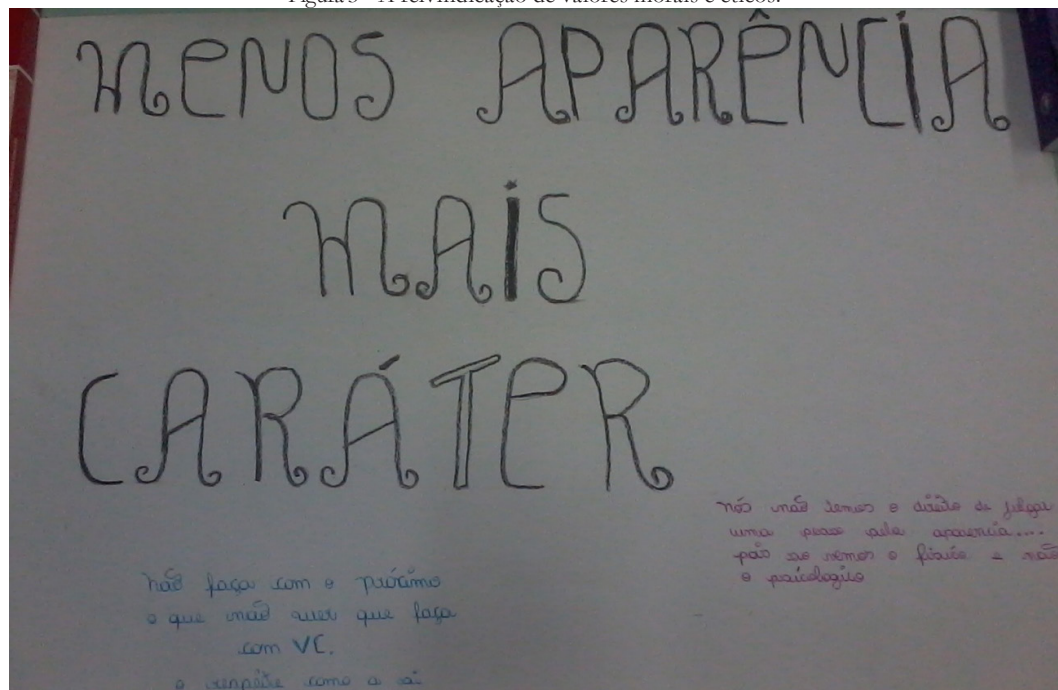 MENOS APARÊNCIA
MAIS
CARÁTER
nós não temos o direito de julgar
uma pela aparencia....
pois so vemos o físico e não
o psicologico
não faça com o próximo
o que não quer que faça
com VC.
o respeite como a si